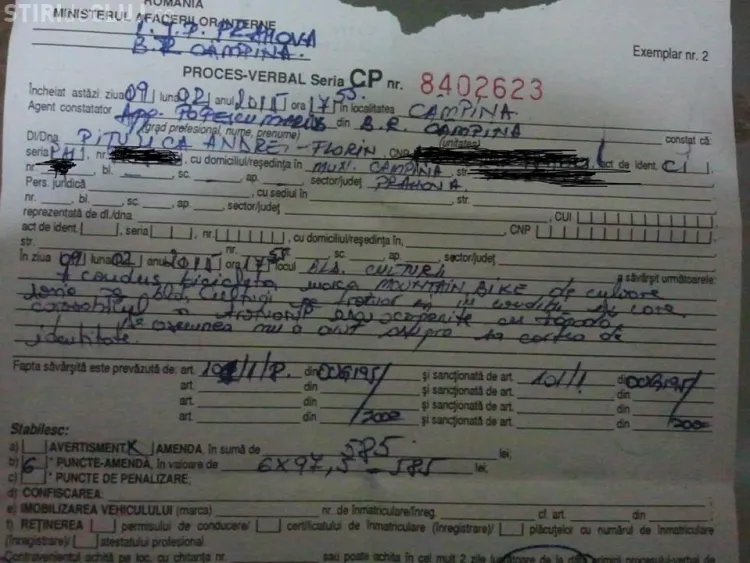 STIRI DE CLUJ.ro
ROMÂNIA
MINISTERUL AFACERILOR INTERNE
I.J.P. PRAHOVA
B.R. CÂMPINA
Exemplar nr. 2
PROCES-VERBAL Seria CP nr. 8402623
Încheiat astăzi ziua 09 luna 02 anul 2011 ora 17 55 în localitatea CÂMPINA
Agent constatator App. Popescu din B.R. CÂMPINA
(grad profesional, nume, prenume) (unitatea) constat că:
Dl/Dna PITULICĂ ANDREI-FLORIN CNP
seria PH nr. cu domiciliul/reşedinţa în MUN. CÂMPINA, str. act de ident. CI
nr. bl. sc. ap. sector/judeţ PRAHOVA
Pers. juridică cu sediul în str.
nr. bl. sc. ap. sector/judeţ CUI
reprezentată de dl./dna. CNP
act de ident. , seria nr. , cu domiciliul/reşedinţa în,
str. nr. bl. sc. ap. sector/judeţ
În ziua 09 luna 02 anul 2011 ora 17 locul Bld. CULTURII a săvârşit următoarele:
A condus bicicleta marca MOUNTAIN BIKE de culoare
Bld. Culturii pe trotuar în condiţii în care
carosabilul şi trotuarul erau acoperite cu zăpadă.
De asemenea nu a avut asupra sa cartea de
identitate.
Fapta săvârşită este prevăzută de: art. din OUG195/ şi sancţionată de art. 101/1. din OUG195/
art. din 2002 şi sancţionată de art. din 2002
art. din şi sancţionată de art. din
art. din şi sancţionată de art. din
Stabilesc:
a) AVERTISMENT X AMENDA, în sumă de 585 lei;
b) 6 * PUNCTE-AMENDA, în valoare de 6x97,5=585 lei;
c) * PUNCTE DE PENALIZARE;
d) CONFISCAREA
e) IMOBILIZAREA VEHICULULUI (marca) nr. de înmatriculare/înreg. cf. art. din
f) REŢINEREA permisului de conducere/ certificatului de înmatriculare (înregistrare)/ plăcuţelor cu numărul de înmatriculare
(înregistrare)/ atestatului profesional
Contravenientul achită pe loc, cu chitanţa nr. sau poate achita în cel mult 2 zile lucrătoare de la data primirii procesului-verbal de